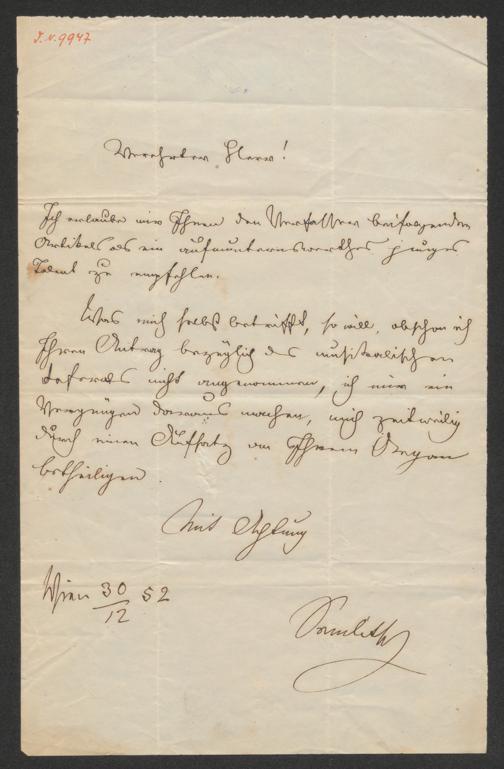 J.N. 9947
Verehrter Herr!
Ich erlaube mir Ihnen den Verfasser beifolgenden
Artikels als ein aufmunternswerthes junges
Talent zu empfehlen.
Was mich selbst betrifft, so will, obschon ich
Ihren Antrag bezüglich des musikalischen
Referates nicht angenommen, ich mir ein
Vergnügen daraus machen, mich zeitweilig
durch einen Aufsatz an Ihrem Organ
betheiligen.
Mit Achtung
Wien 30/12 52